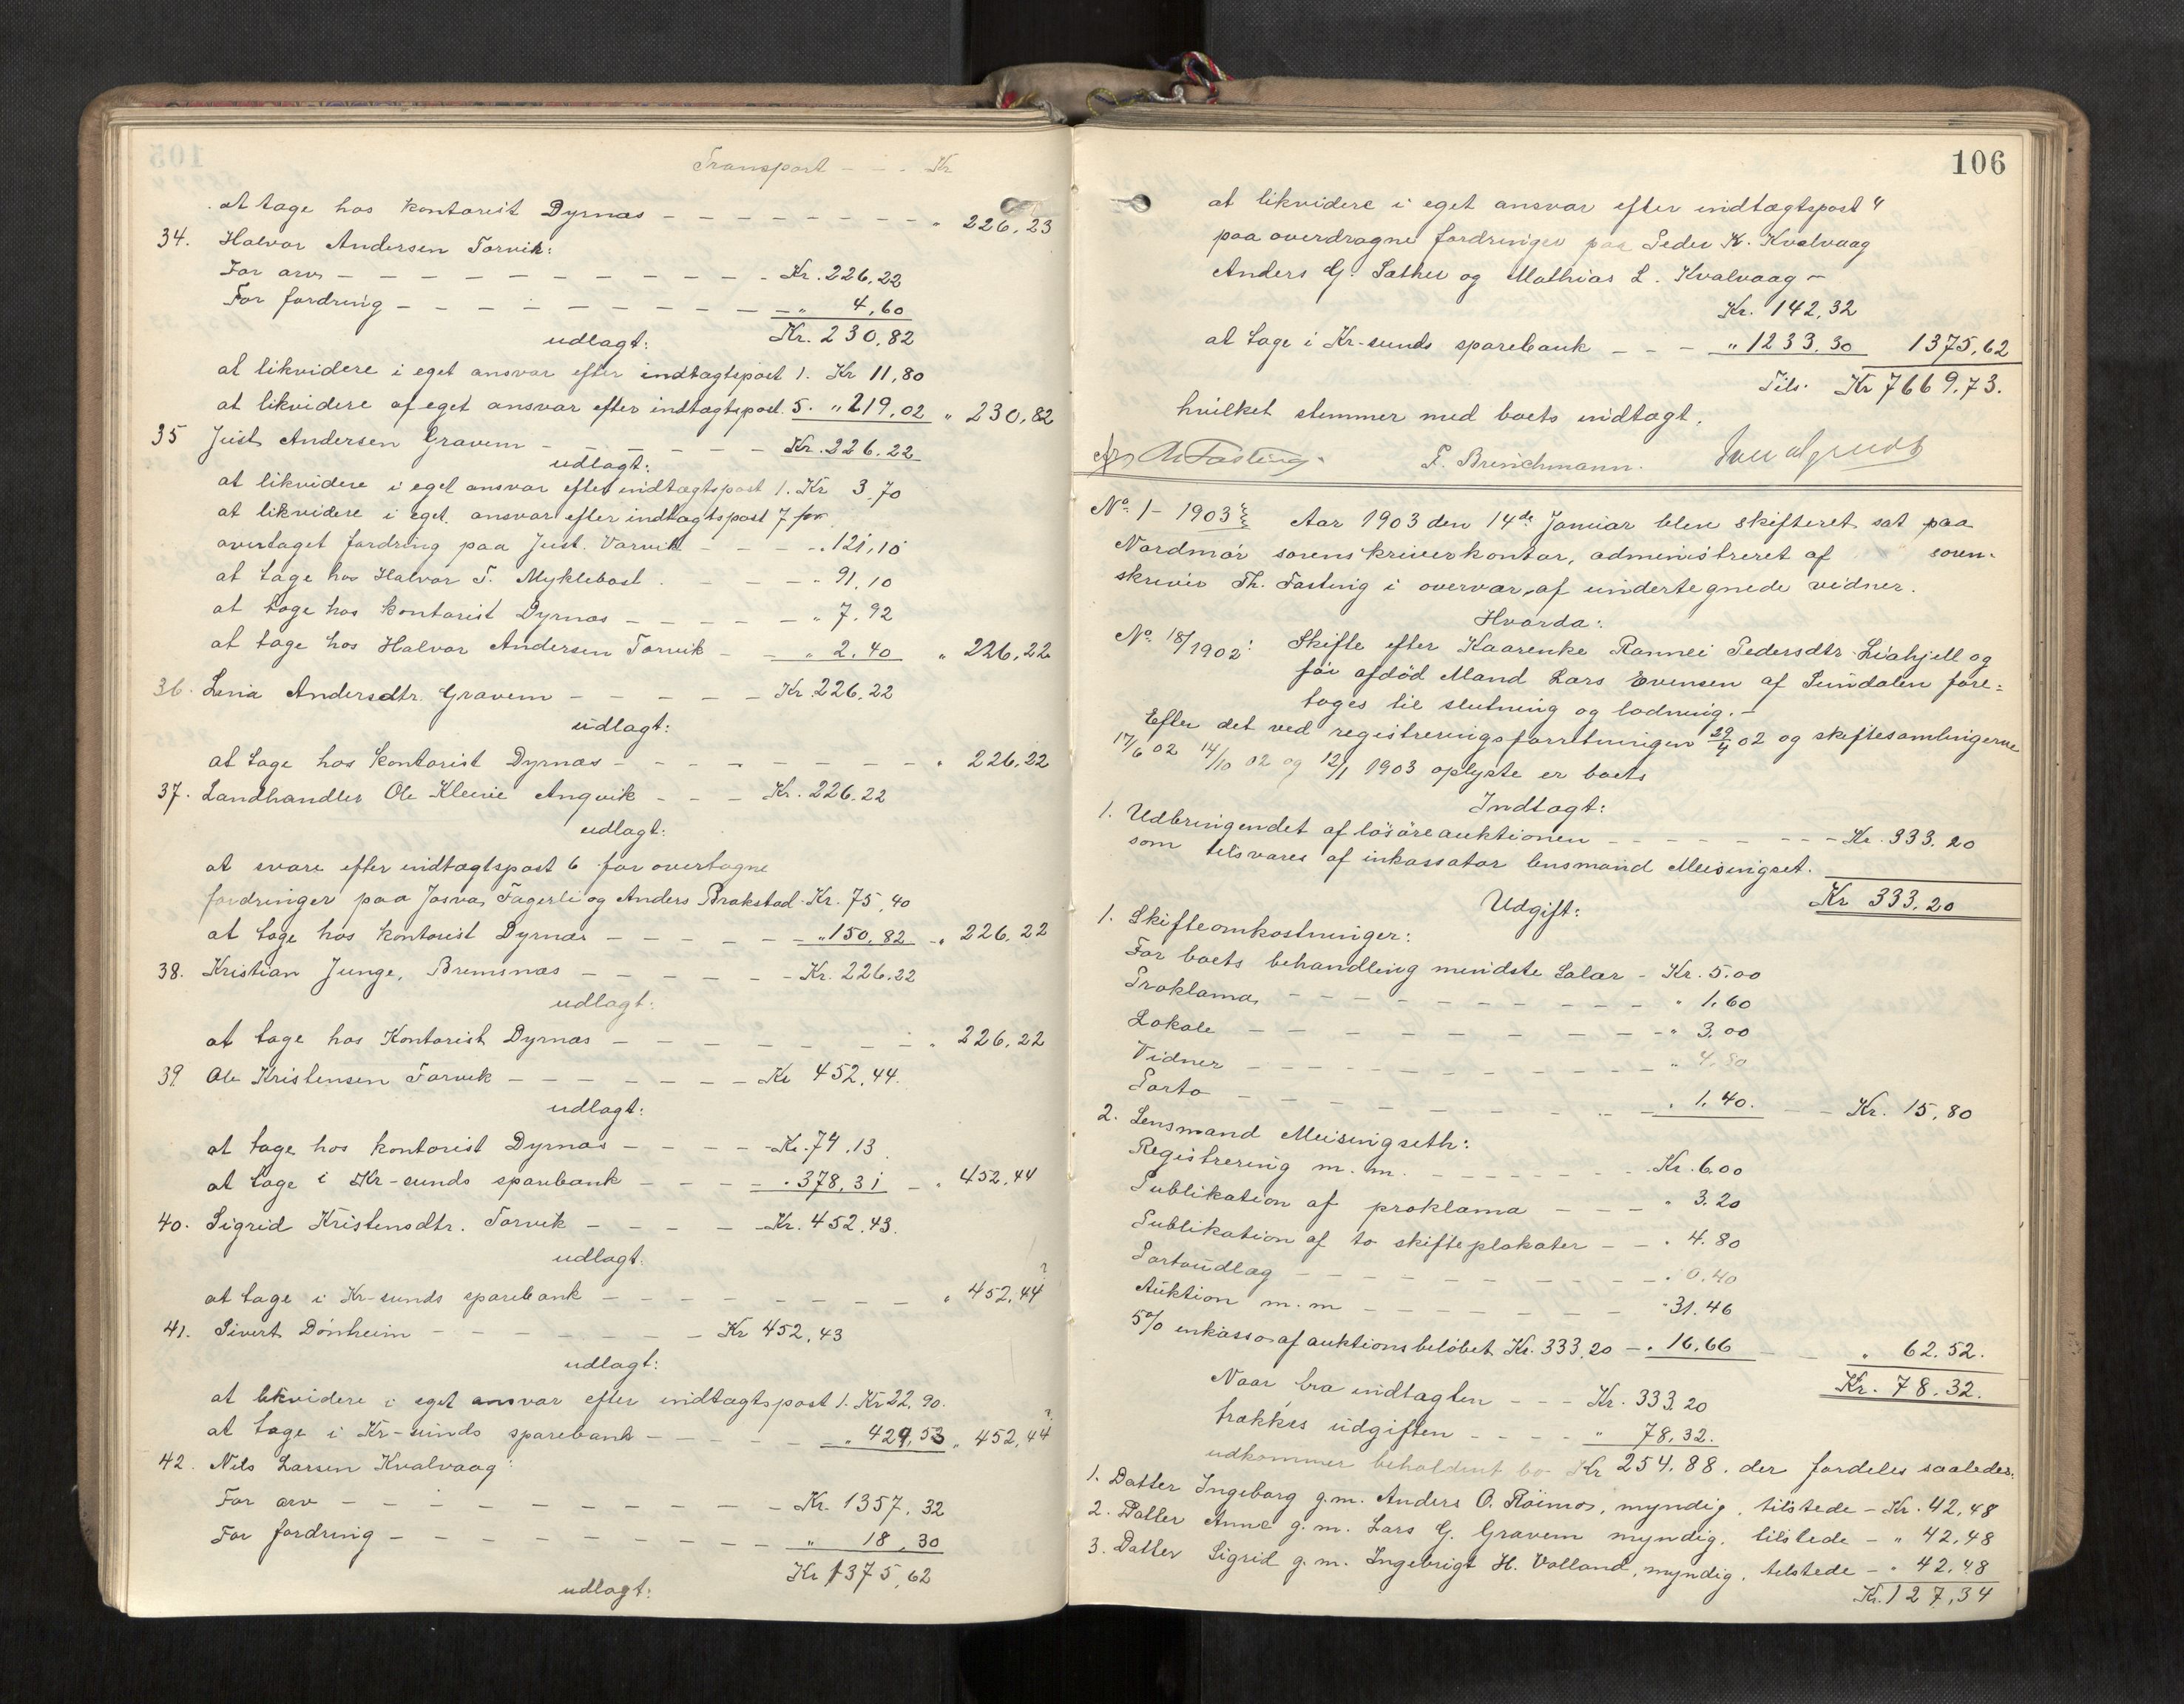 105
Transport - - - Kr
at tage hos kontorist Dyrnæs - - - - - - - - - " 226,23
34. Halvor Andersen Torvik:
For arv - - - - - - - - - - - Kr. 226,22
For fordring - - - - - - - - - " 4,60
udlagt: Kr. 230,82
at likvidere i eget ansvar efter indtægtspost 1. Kr 11,80
at likvidere af eget ansvar efter indtægtspost 5. " 219,02 " 230,82
35 Just Andersen Gravem - - - - - - Kr. 226.22
udlagt:
at likvidere i eget ansvar efter indtægtspost 1. Kr 3,70
at likvidere i eget ansvar efter indtægtspost 7 for
overtaget fordring paa Just. Varvik - - - - " 121,10
at tage hos Halvor T. Myklebost - - - - " 91,10
at tage hos kontorist Dyrnæs - - - - - " 7,92
at tage hos Halvor Andersen Torvik - - " 2.40 " 226,22
36. Lina Andersdtr. Gravem - - - - - Kr. 226.22
udlagt:
at tage hos kontorist Dyrnæs - - - - - - - - - " 226,22
37. Landhandler Ole Kleive Angvik - - - Kr. 226.22
udlagt:
at svare efter indtægtspost 6 for overtagne
fordringer paa Josva Fagerli og Anders Brakstad. Kr. 75,40
at tage hos kontorist Dyrnæs - - - - - - " 150,82 - " 226,22
38. Kristian Junge, Bremsnæs - - - - - - Kr. 226.22
udlagt:
at tage hos Kontorist Dyrnæs - - - - - - - - - " 226,22
39 Ole Kristensen Torvik - - - - - - - Kr 452,44.
udlagt:
at tage hos kontorist Dyrnæs - - - - - Kr. 74,13.
at tage i Kr-sunds sparebank - - - - " 378,31 - " 452,44
40. Sigrid Kristensdtr. Torvik - - - - - Kr. 452,43.
udlagt.
at tage i Kr-sunds sparebank - - - - - - - - - " 452,44 ?
41. Sivert Dønheim - - - - - - - Kr 452,43
udlagt:
at likvidere i eget ansvar efter indtægtspost 1. Kr 22,90.
at tage i Kr-sunds sparebank - - - - - " 429,53 " 452,44 ?
42. Nils Larsen Kvalvaag:
For arv - - - - - - - - - - - Kr. 1357,32
For fordring - - - - - - - - - - " 18,30
Kr 1375,62
udlagt:
106
at likvidere i eget ansvar efter indtægtspost 4
paa overdragne fordringer paa Peder K. Kvalvaag
Anders G. Sæther og Mathias L. Kvalvaag -
Kr. 142,32
at tage i Kr-sunds sparebank - - - " 1233,30 1375,62
Tils. Kr 7669,73.
hvilket stemmer med boets indtægt.
Th Fasting. F. Brinchmann.
No. 1 - 1903 Aar 1903 den 14de Januar blev skifteret sat paa
Nordmør sorenskriverkontor, administreret af soren-
skriver Th. Fasting i overvær af undertegnede vidner.
Hvorda:
No. 18/1902: Skifte efter Kaarenke Rannei Pedersdtr Liahjell og
før afdød Mand Lars Evensen af Sundalen fore=
toges til slutning og lodning. -
Efter det ved registreringsforretningen 29/4 02 og skiftesamlingerne
17/6 02 14/10 02 og 12/1 1903 oplyste er boets
Indtægt:
1. Udbringendet af løsøreauktionen - - - - - - - - Kr. 333,20
som tilsvares af inkassator lensmand Meisingset.
Kr 333,20
Udgift:
1. Skifteomkostninger:
For boets behandling mindste Salær - Kr. 5.00
Proklama - - - - - - - - - - " 1,60
Lokale - - - - - - - - - - " 3,00
Vidner - - - - - - - - - - " 4,80
Porto - - - - - - - - - - " 1,40. - - Kr. 15,80
2. Lensmand Meisingseth:
Registrering m. m. - - - - - - - Kr. 6.00
Publikation af proklama - - - " 3.20
Publikation af to skifteplakater - - " 4.80
Portoudlæg - - - - - - - - - - " 0,40
Auktion m. m - - - - - - - - " 31.46
5% inkasso af auktionsbeløbet Kr. 333,20 - " 16,66 - - " 62.52.
Kr. 78,32.
Naar fra indtægten - - - Kr. 333.20
trækkes udgiften - - - - " 78,32.
udkommer beholdent bo Kr 254.88. der fordeles saaledes:
1. Datter Ingeborg g.m. Anders O. Røimo, myndig, tilstede - Kr. 42,48
2. Datter Anne g.m. Lars G. Gravem myndig, tilstede - " 42,48
3. Datter Sigrid g.m. Ingebrigt H. Volland, myndig, tilstede - " 42,48
Kr. 127,34